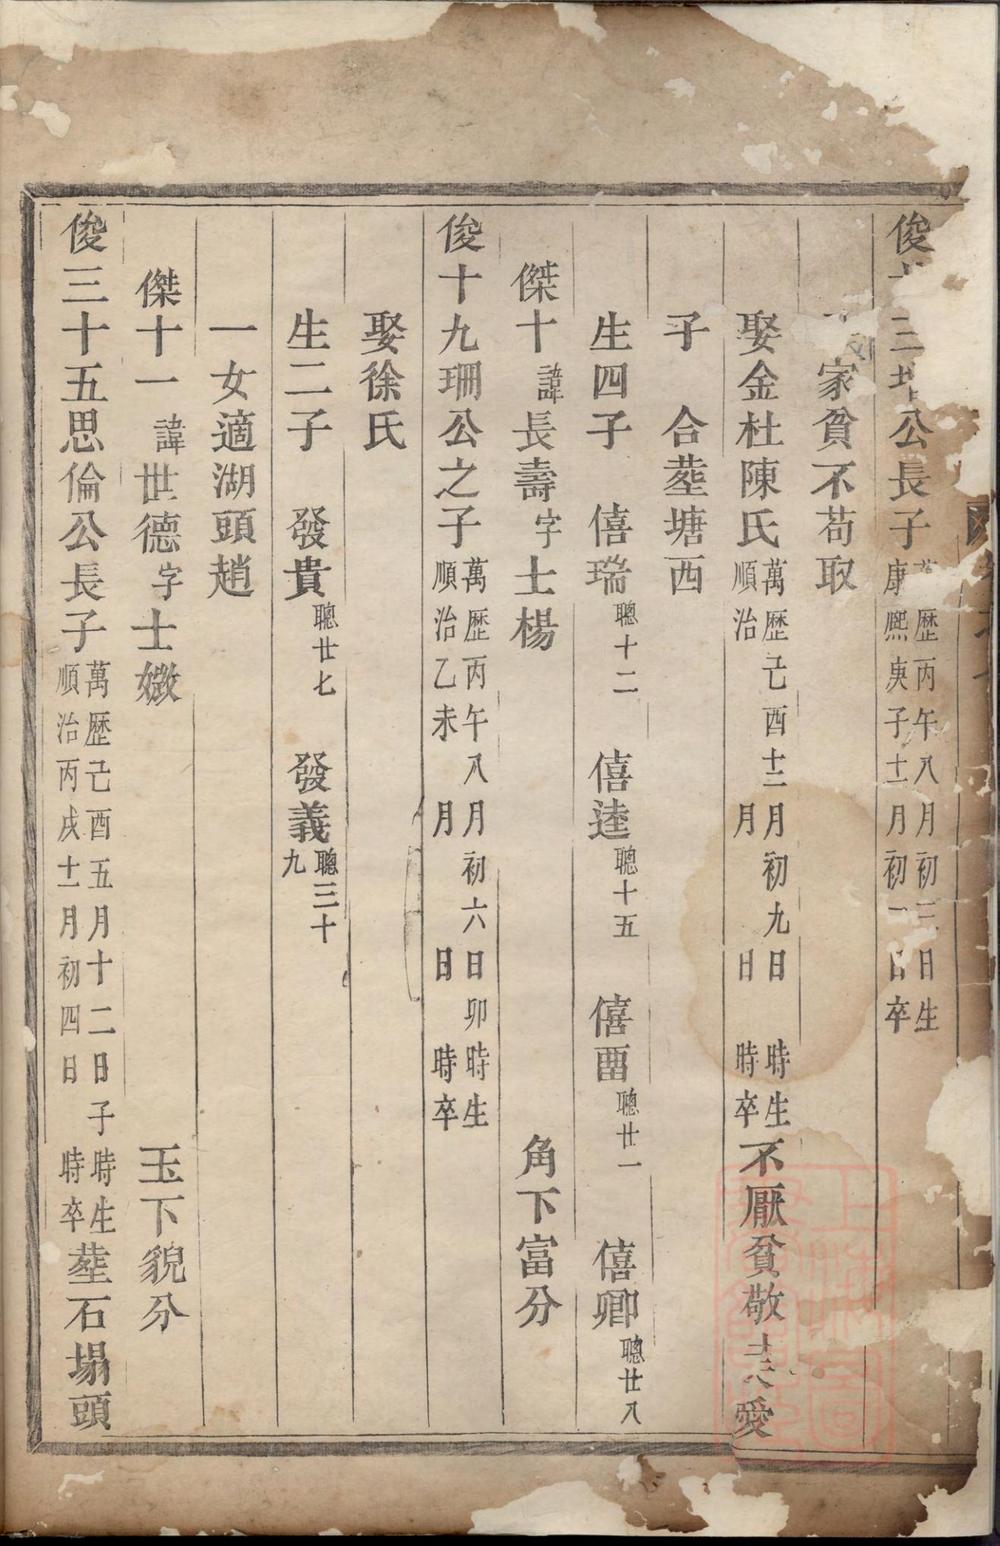 俊 三 公長子 歷丙午八月初三日生 康熙庚子十一月初一日卒
家貧不苟取
娶金杜陳氏 萬歷己酉十二月初九日 時生 順治 月 日 時卒 不厭貧敬夫愛
子 合塟塘西
生四子 僖瑞 聰十二 僖逵 聰十五 僖畱 聰廿一 僖卿 聰廿八
傑十 諱長壽字士楊 角下富分
俊十九珊公之子 萬歷丙午八月初六日卯時生 順治乙未 月 日 時卒
娶徐氏
生二子 發貴 聰廿七 發義 聰三十九
一女適湖頭趙
傑十一 諱世德字士媺 玉下貌分
俊三十五思倫公長子 萬歷己酉五月十二日子時生 順治丙戌十一月初四日 時卒 塟石塌頭